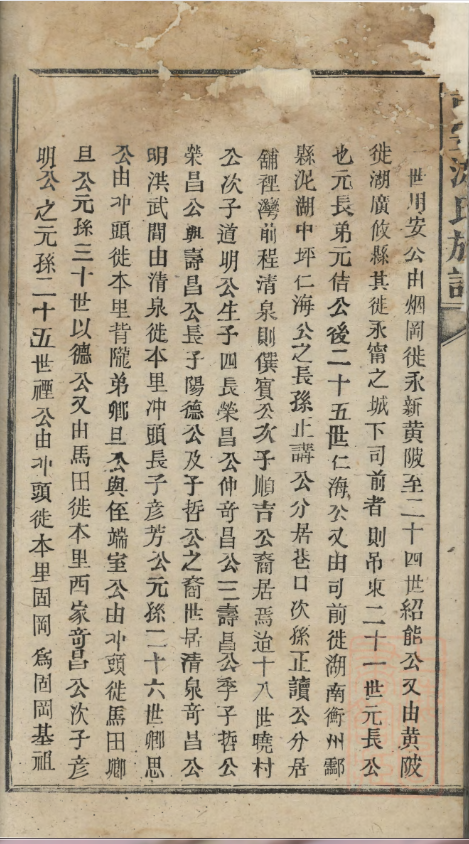 世用安公由烟岡徙永新黄陂至二十四世紹能公又由黄陂
徙湖廣攸縣其徙永甯之城下司前者則吊東二十一世元長公
也元長弟元佶公後二十五世仁海公又由司前徙湖南衡州酃
縣泥湖中坪仁海公之長孫正講公分居巷口次孫正讀公分居
舖裡灣前程清泉則僎賓公次子順吉公裔居焉迨十八世曉村
公次子道明公生子四長榮昌公仲奇昌公三壽昌公季子哲公
榮昌公與壽昌公長子陽德公及子哲公之裔世居清泉奇昌公
明洪武間由清泉徙本里冲頭長子彥芳公元孫二十六世卿思
公由冲頭徙本里背隴弟卿旦公與侄端室公由冲頭徙馬田卿
旦公元孫三十世以德公又由馬田徙本里西家奇昌公次子彥
明公之元孫二十五世禋公由冲頭徙本里固岡為固岡基祖
氏族譜